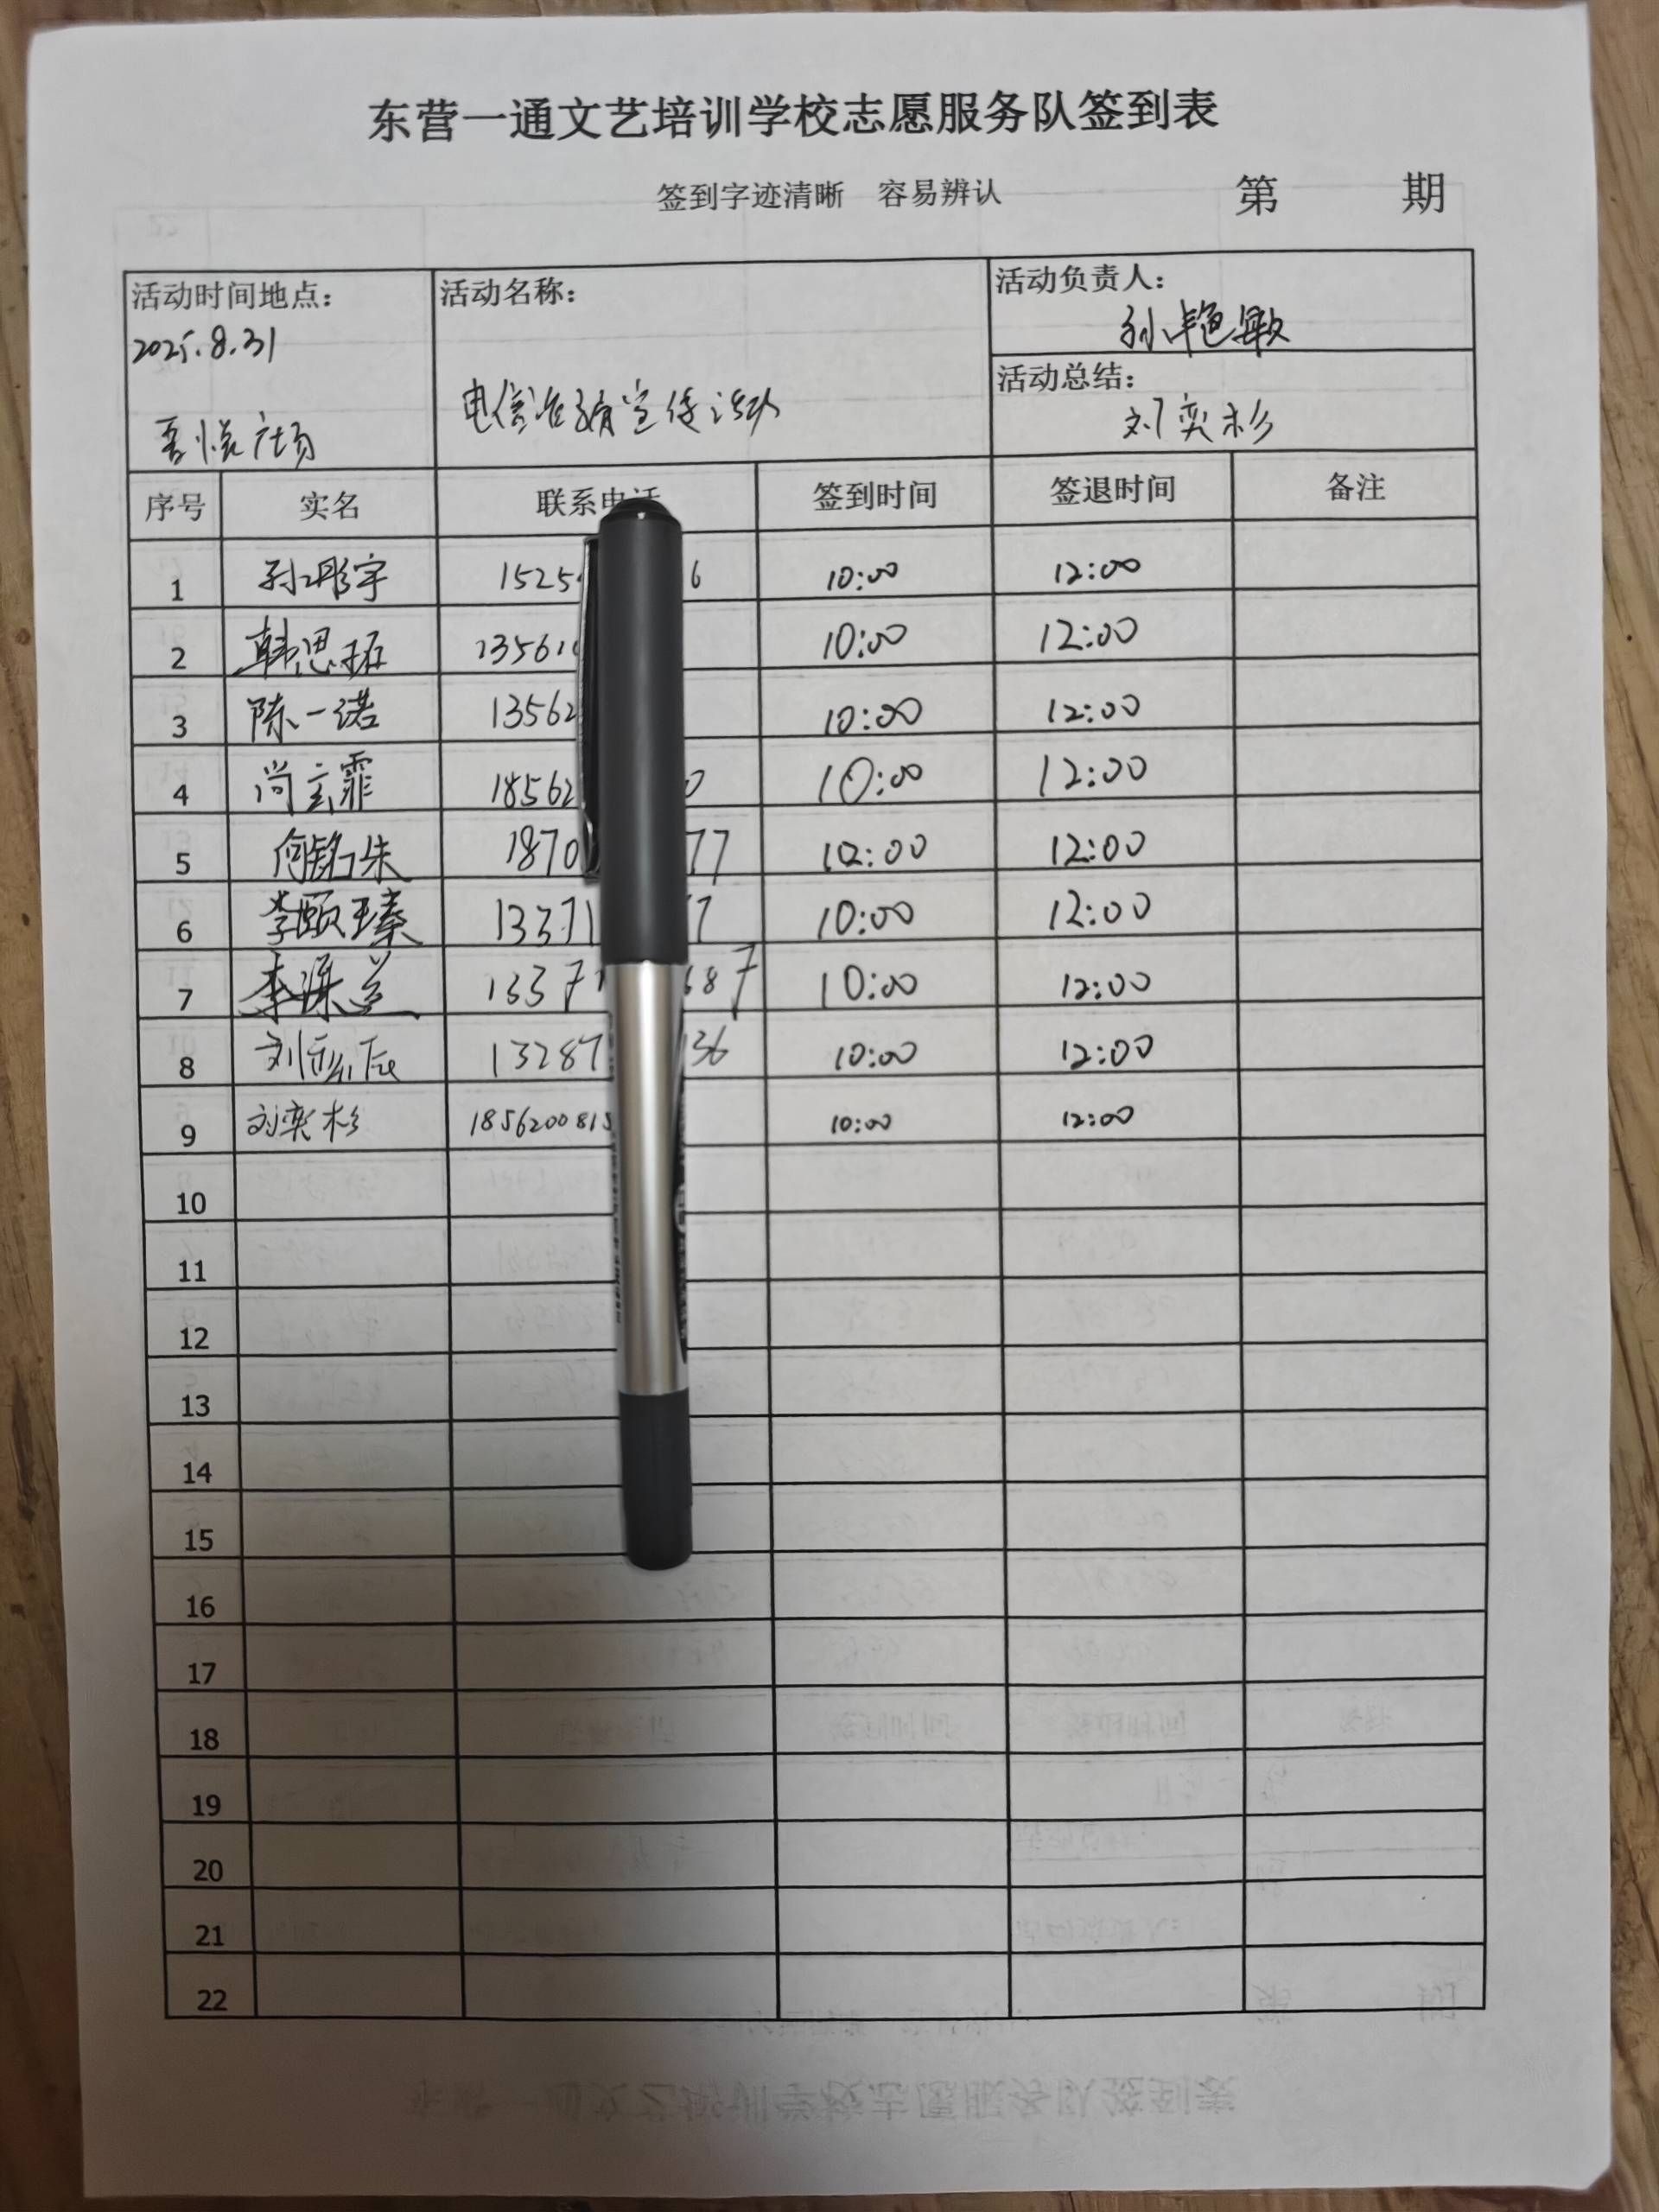 东营一通文艺培训学校志愿服务队签到表
签到字迹清晰 容易辨认 第 期
活动时间地点： 活动名称： 活动负责人：
2025.8.31 孙艳敏
活动总结：
吾悦广场 电信诈骗宣传活动 刘奕杉
序号 实名 联系电话 签到时间 签退时间 备注
1 孙彤宇 1525 6 10:00 12:00
2 韩思 13561 10:00 12:00
3 陈一诺 13562 10:00 12:00
4 尚玄霏 18562 0 10:00 12:00
5 何铭朱 1870 77 10:00 12:00
6 李颐臻 13371 7 10:00 12:00
7 李 1337 687 10:00 12:00
8 刘 13287 136 10:00 12:00
9 刘奕杉 1856200815 10:00 12:00
10
11
12
13
14
15
16
17
18
19
20
21
22